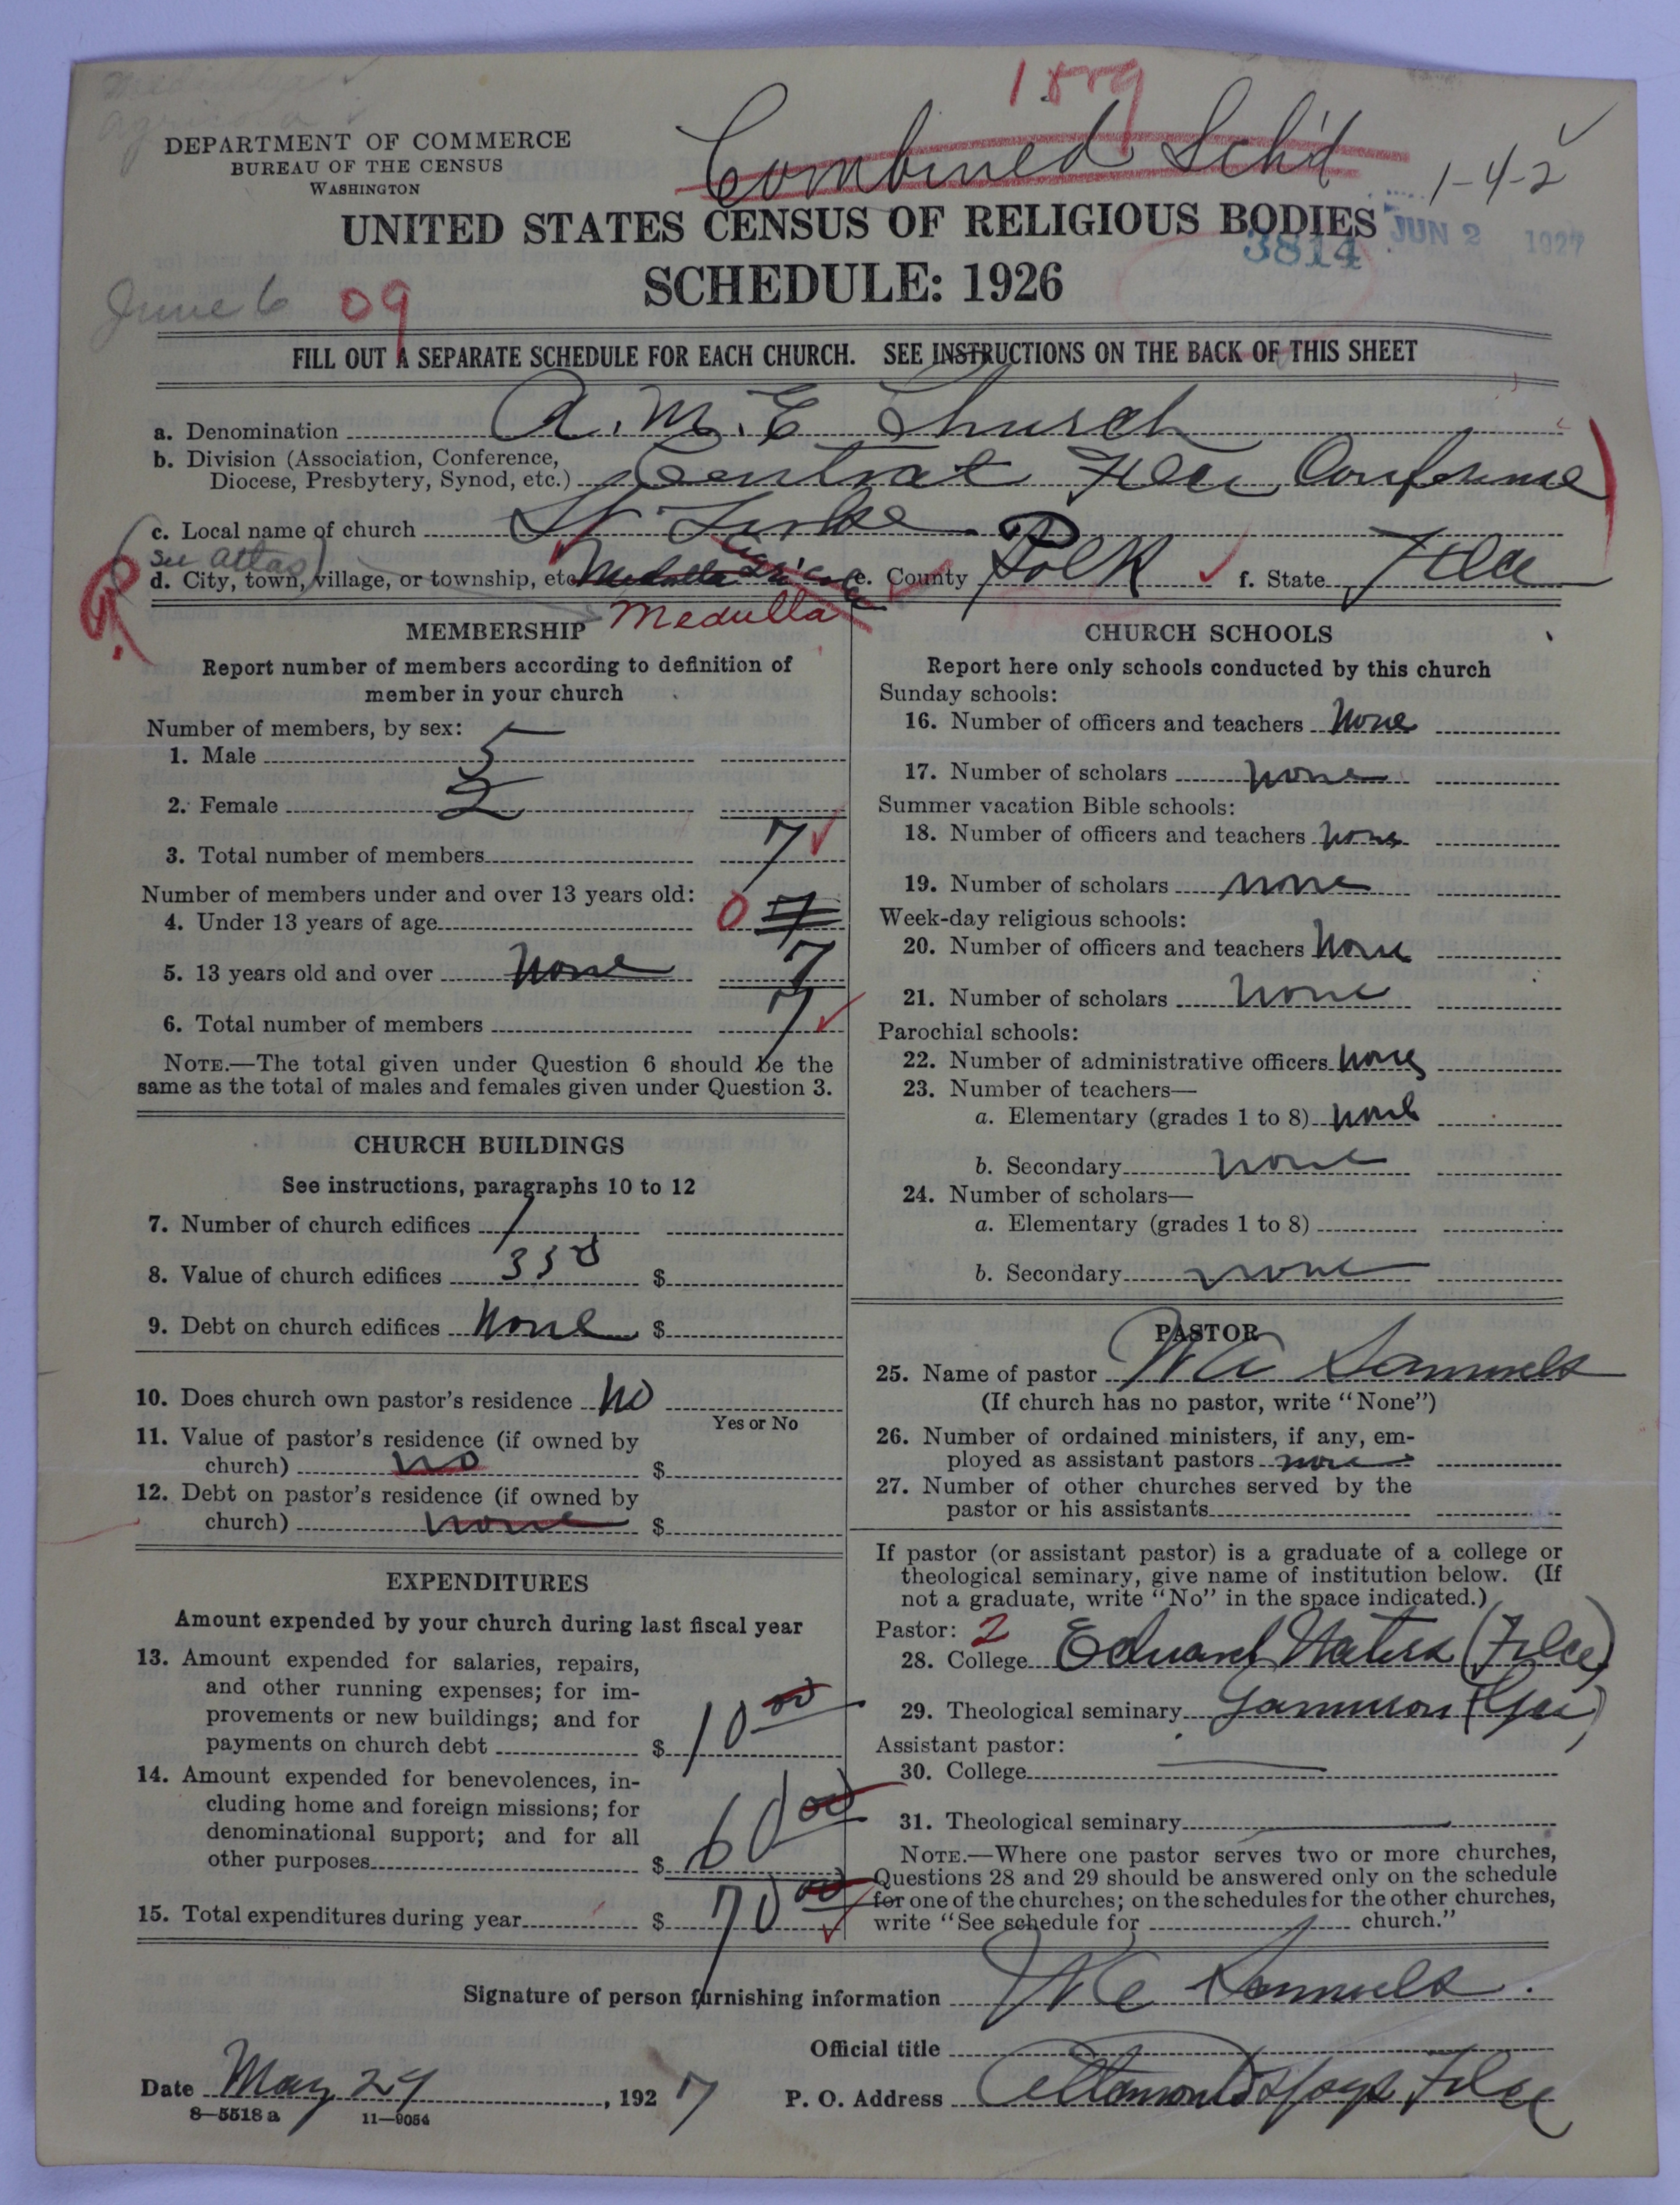 1889
Combined Sch'd
1-4-2
DEPARTMENT OF COMMERCE
BUREAU OF THE CENSUS
WASHINGTON
UNITED STATES CENSUS OF RELIGIOUS BODIES
JUN 2 1927
3814
SCHEDULE: 1926
June 6
09
FILL OUT A SEPARATE SCHEDULE FOR EACH CHURCH. SEE INSTRUCTIONS ON THE BACK OF THIS SHEET
a. Denomination A. M. E Church
b. Division (Association, Conference,
Diocese, Presbytery, Synod, etc.) Central Fla Conference
c. Local name of church St Luke
see atlas
d. City, town, village, or township, etc. Medulla e. County Polk f. State Fla
Medulla
MEMBERSHIP
Report number of members according to definition of
member in your church
Number of members, by sex:
1. Male 5
2. Female 2
3. Total number of members 7
Number of members under and over 13 years old:
4. Under 13 years of age 0 7
5. 13 years old and over None 7
6. Total number of members 7
NOTE.—The total given under Question 6 should be the
same as the total of males and females given under Question 3.
CHURCH BUILDINGS
See instructions, paragraphs 10 to 12
7. Number of church edifices 1
8. Value of church edifices 350 $
9. Debt on church edifices None $
10. Does church own pastor's residence No
Yes or No
11. Value of pastor's residence (if owned by
church) no $
12. Debt on pastor's residence (if owned by
church) none $
EXPENDITURES
Amount expended by your church during last fiscal year
13. Amount expended for salaries, repairs,
and other running expenses; for im-
provements or new buildings; and for
payments on church debt $ 10 00
14. Amount expended for benevolences, in-
cluding home and foreign missions; for
denominational support; and for all
other purposes $ 60 00
15. Total expenditures during year $ 70 00
CHURCH SCHOOLS
Report here only schools conducted by this church
Sunday schools:
16. Number of officers and teachers None
17. Number of scholars none
Summer vacation Bible schools:
18. Number of officers and teachers none
19. Number of scholars none
Week-day religious schools:
20. Number of officers and teachers None
21. Number of scholars None
Parochial schools:
22. Number of administrative officers None
23. Number of teachers—
a. Elementary (grades 1 to 8) none
b. Secondary none
24. Number of scholars—
a. Elementary (grades 1 to 8)
b. Secondary none
PASTOR
25. Name of pastor W C Samuels
(If church has no pastor, write "None")
26. Number of ordained ministers, if any, em-
ployed as assistant pastors none
27. Number of other churches served by the
pastor or his assistants
If pastor (or assistant pastor) is a graduate of a college or
theological seminary, give name of institution below. (If
not a graduate, write "No" in the space indicated.)
Pastor: 2
28. College Edward Waters (Fla)
29. Theological seminary Gammon (Ga)
Assistant pastor:
30. College
31. Theological seminary
NOTE.—Where one pastor serves two or more churches,
Questions 28 and 29 should be answered only on the schedule
for one of the churches; on the schedules for the other churches,
write "See schedule for church."
Signature of person furnishing information W C Samuels
Official title
Date May 27, 1927 P. O. Address Altamonte Spgs Fla
8—5518 a 11—9054